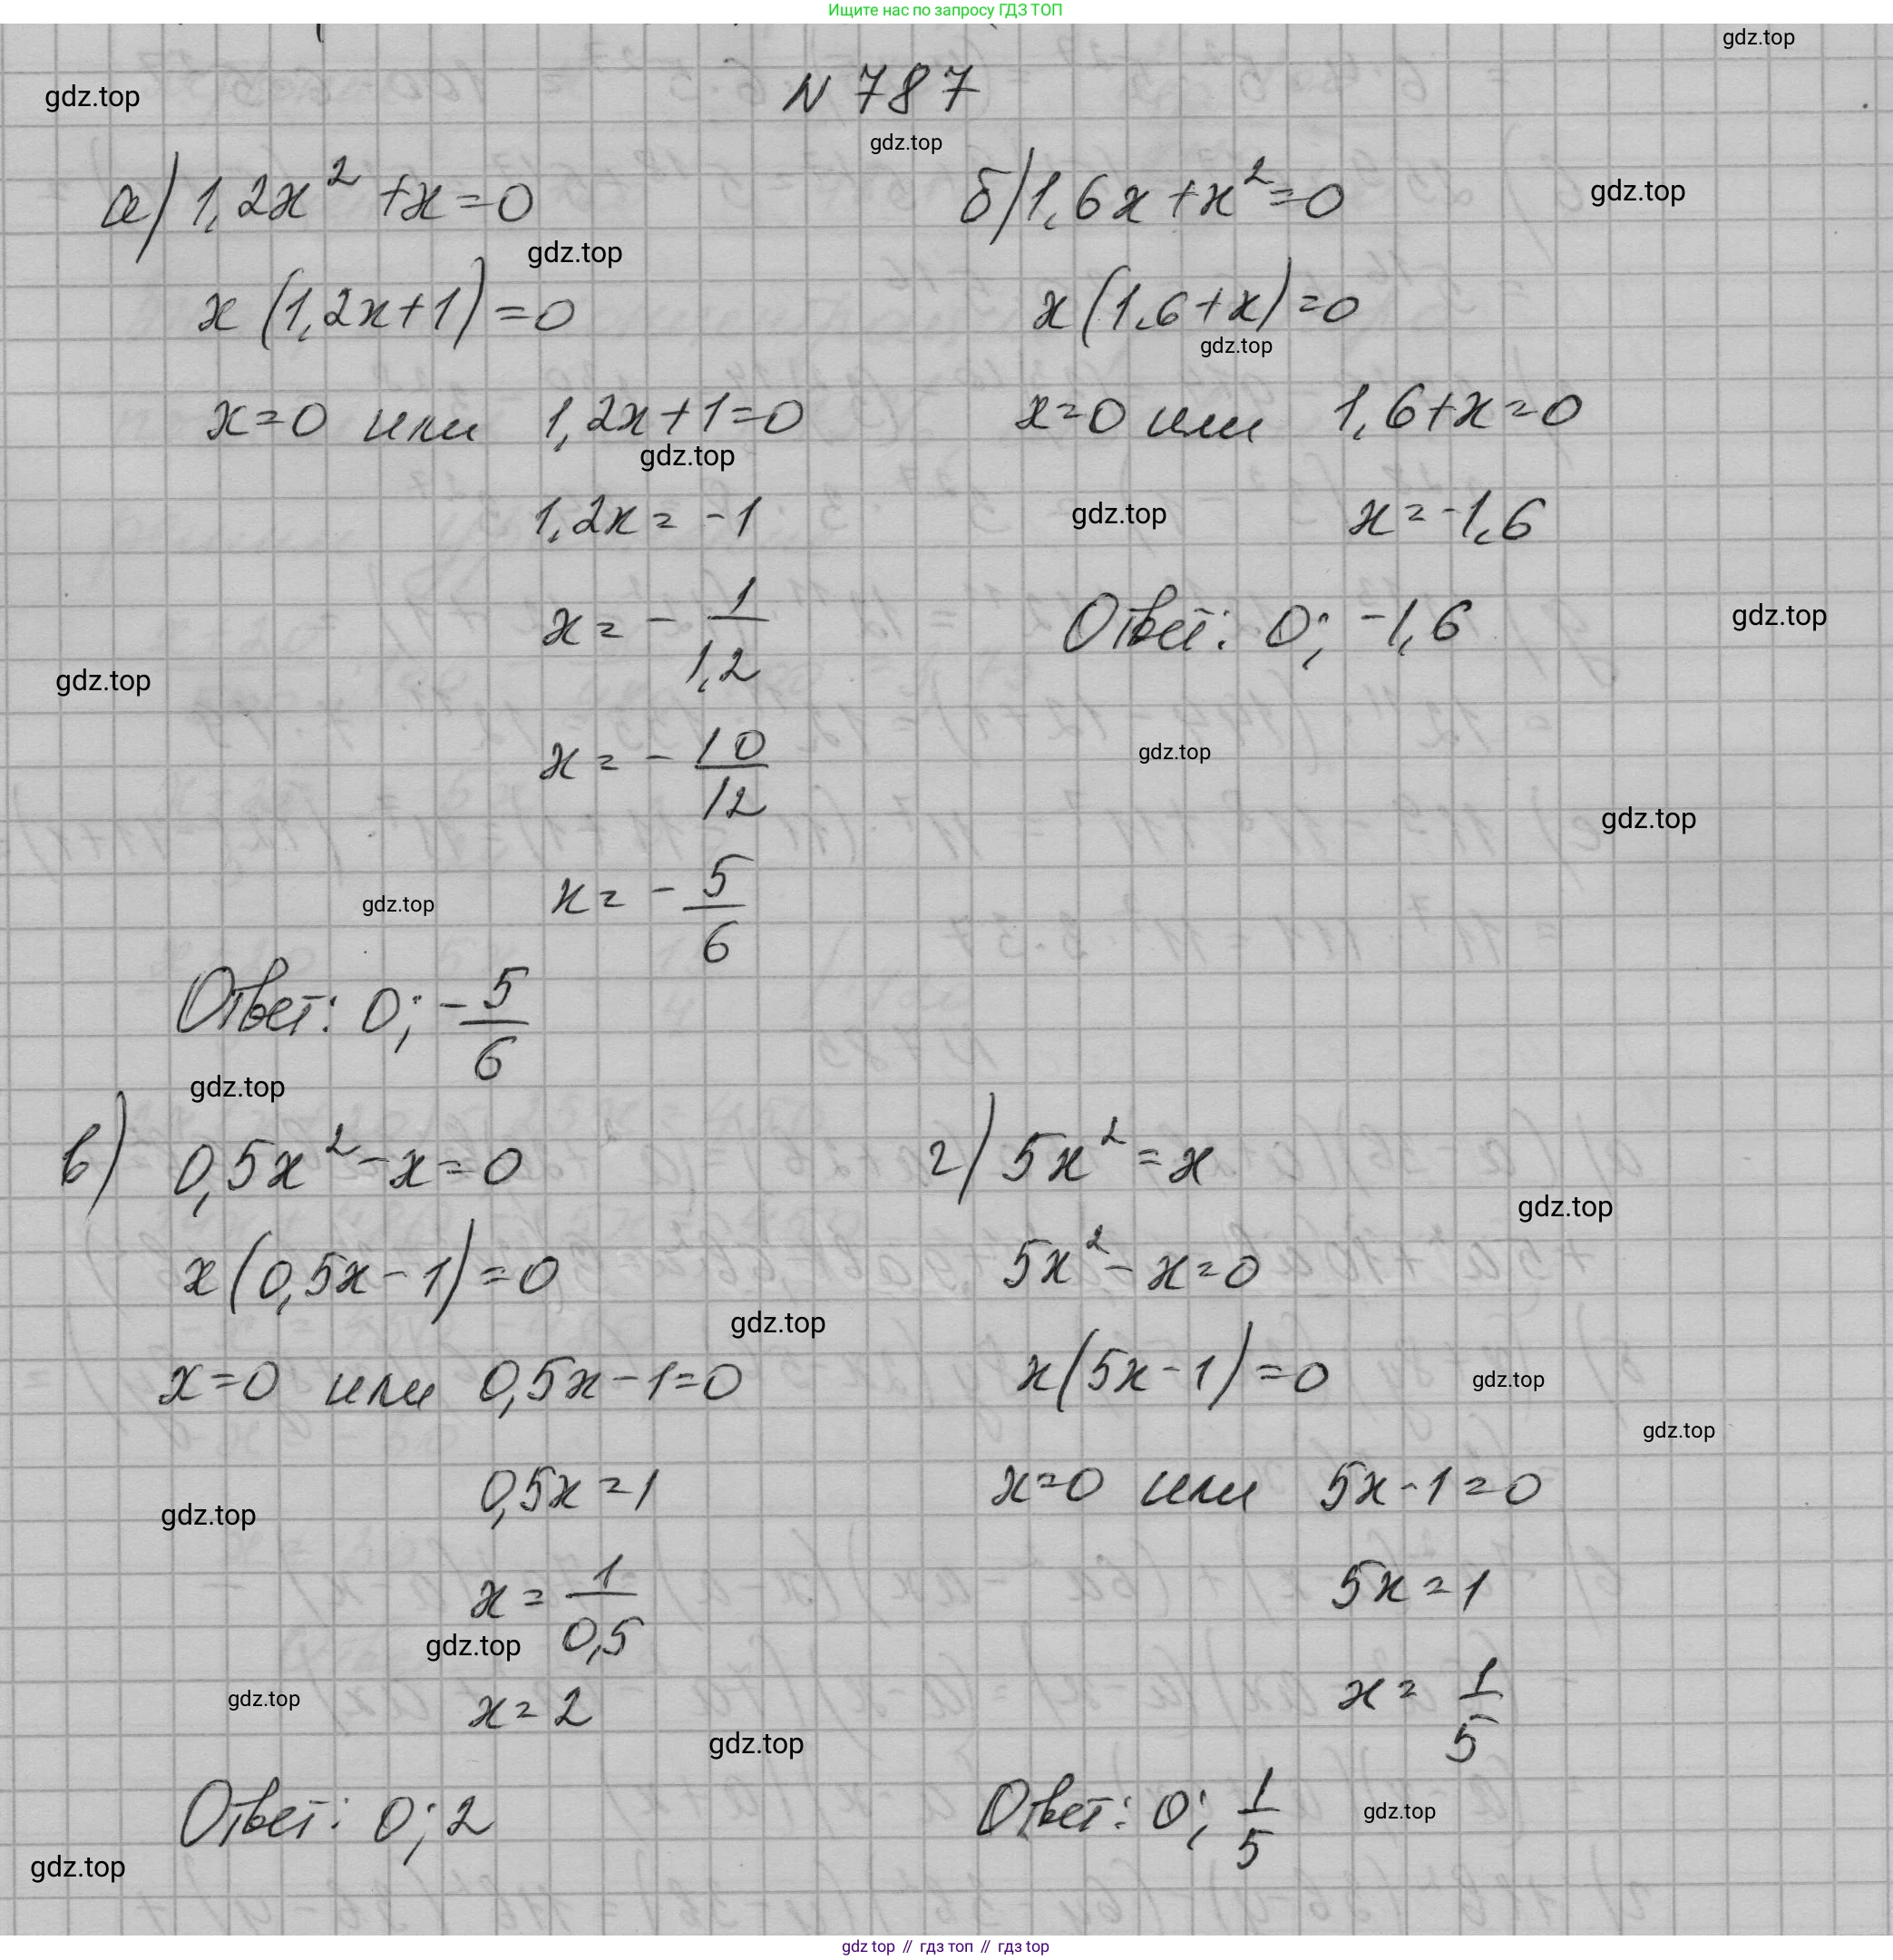 Ищите нас по запросу ГДЗ ТОП
gdz.top
gdz.top
N 787
gdz.top
а) 1,2x² + x = 0
gdz.top
x (1,2x + 1) = 0
x = 0 или 1,2x + 1 = 0
gdz.top
1,2x = -1
x = - 1/1,2
gdz.top
x = - 10/12
x = - 5/6
gdz.top
Ответ: 0; - 5/6
gdz.top
б) 1,6x + x² = 0
gdz.top
x (1,6 + x) = 0
gdz.top
x = 0 или 1,6 + x = 0
gdz.top
x = -1,6
Ответ: 0; -1,6
gdz.top
gdz.top
gdz.top
в) 0,5x² - x = 0
x (0,5x - 1) = 0
gdz.top
x = 0 или 0,5x - 1 = 0
0,5x = 1
gdz.top
x = 1/0,5
gdz.top
gdz.top
x = 2
gdz.top
Ответ: 0; 2
gdz.top
г) 5x² = x
gdz.top
5x² - x = 0
x (5x - 1) = 0
gdz.top
gdz.top
x = 0 или 5x - 1 = 0
5x = 1
x = 1/5
Ответ: 0; 1/5
gdz.top
gdz top // гдз топ // gdz top